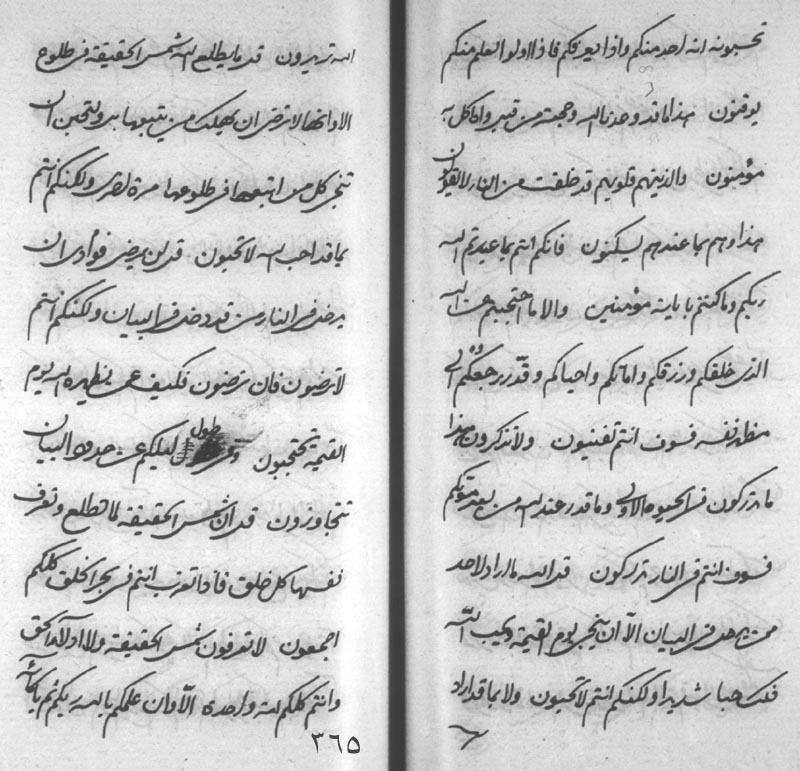 تحسبونه انه احد منكم واذا يعرفكم فاذا اولوا العلم منكم
يوقنون هذا ما قد وعدنا الله وحجته من قبل وانا كل به
مؤمنون والذينهم قلوبهم قد خلقت من النار لايقولون
هذا وهم بما عندهم يسكنون فانكم انتم بما عبدتم الله
ربكم وما كنتم باياته مؤمنين والا ما احتجبتم عن الله
الذى خلقكم ورزقكم واماتكم واحياكم وقدر رجعكم الى
مظهر نفسه فسوف انتم تفنيون ولا تذكرون هذا
ما تدركون فى الحيوة الاولى وما قدر عند الله من بعد موتكم
فسوف انتم فى النار تدركون قل الله ما اراد لاحد
من يدخل فى البيان الا ان ينجى يوم القيمة ويحب الله
ذلك حبا شديدا ولكنكم انتم لا تحبون ولا بما قد اراد
الله تريدون قل ما يطلع الله شمس الحقيقة فى طلوع
الا وانها لا ترضى ان يهلك من يتبعها بل ولتحبن ان
تنجى كل من اتبعها فى طلوعها مرة اخرى ولكنكم انتم
بما قد احب الله لا تحبون قل لن يرضى فؤادى ان
يدخل فى النار من قد دخل فى البيان ولكنكم انتم
لا ترضون فان ترضون فكيف عمن يظهره الله يوم
القيمة تحتجبون وعن طول ليلكم عن حدود البيان
تتجاوزون قل ان شمس الحقيقة لما تطلع وتعرف
نفسها كل خلق فاذا تعرب انتم فى بحر الخلق كلكم
اجمعون لا تعرفون شمس الحقيقة ولا ادلاء الحق
وانتم كلكم لله واحدة الا وان علمكم بالله ربكم ثم باياته
٣٦٥